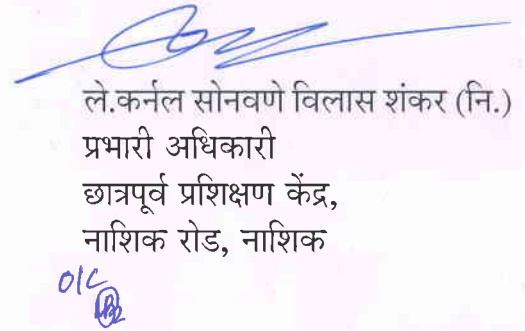 ले.कर्नल सोनवणे विलास शंकर (नि.)
प्रभारी अधिकारी
छात्रपूर्व प्रशिक्षण केंद्र,
नाशिक रोड, नाशिक
O/C